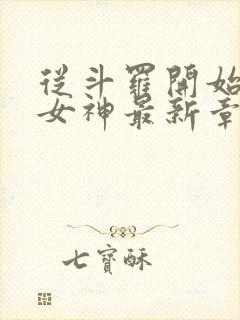 從斗羅開始
女神最新章
七寶酥